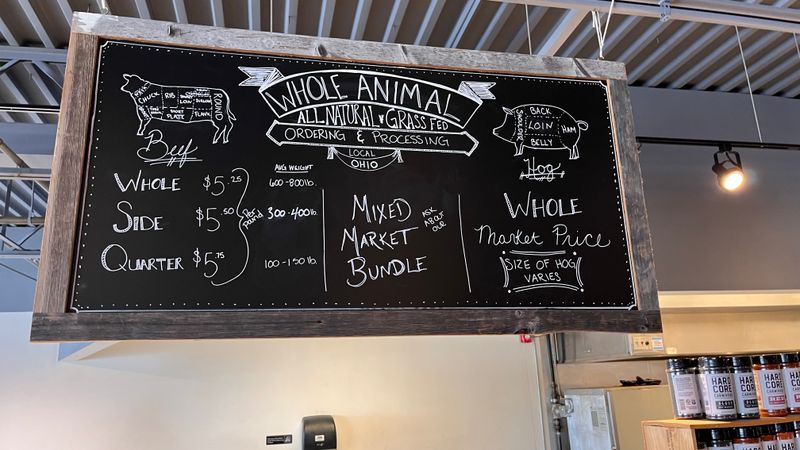 WHOLE ANIMAL
ALL NATURAL & GRASS FED
ORDERING & PROCESSING
LOCAL
OHIO
CHUCK
RIB
SHORT LOIN
SIRLOIN
ROUND
SHORT PLATE
FLANK
Beef
AVG WEIGHT
WHOLE $5.25 600-800 lb.
SIDE $5.50 300-400 lb.
QUARTER $5.75 100-150 lb.
Per pound
MIXED
MARKET
BUNDLE
ASK
ABOUT
OUR
BACK
LOIN
HAM
BELLY
Hog
WHOLE
Market Price
SIZE OF HOG
VARIES
HARD
CORE
CARNIVORE
HARD
CORE
CARNIVORE